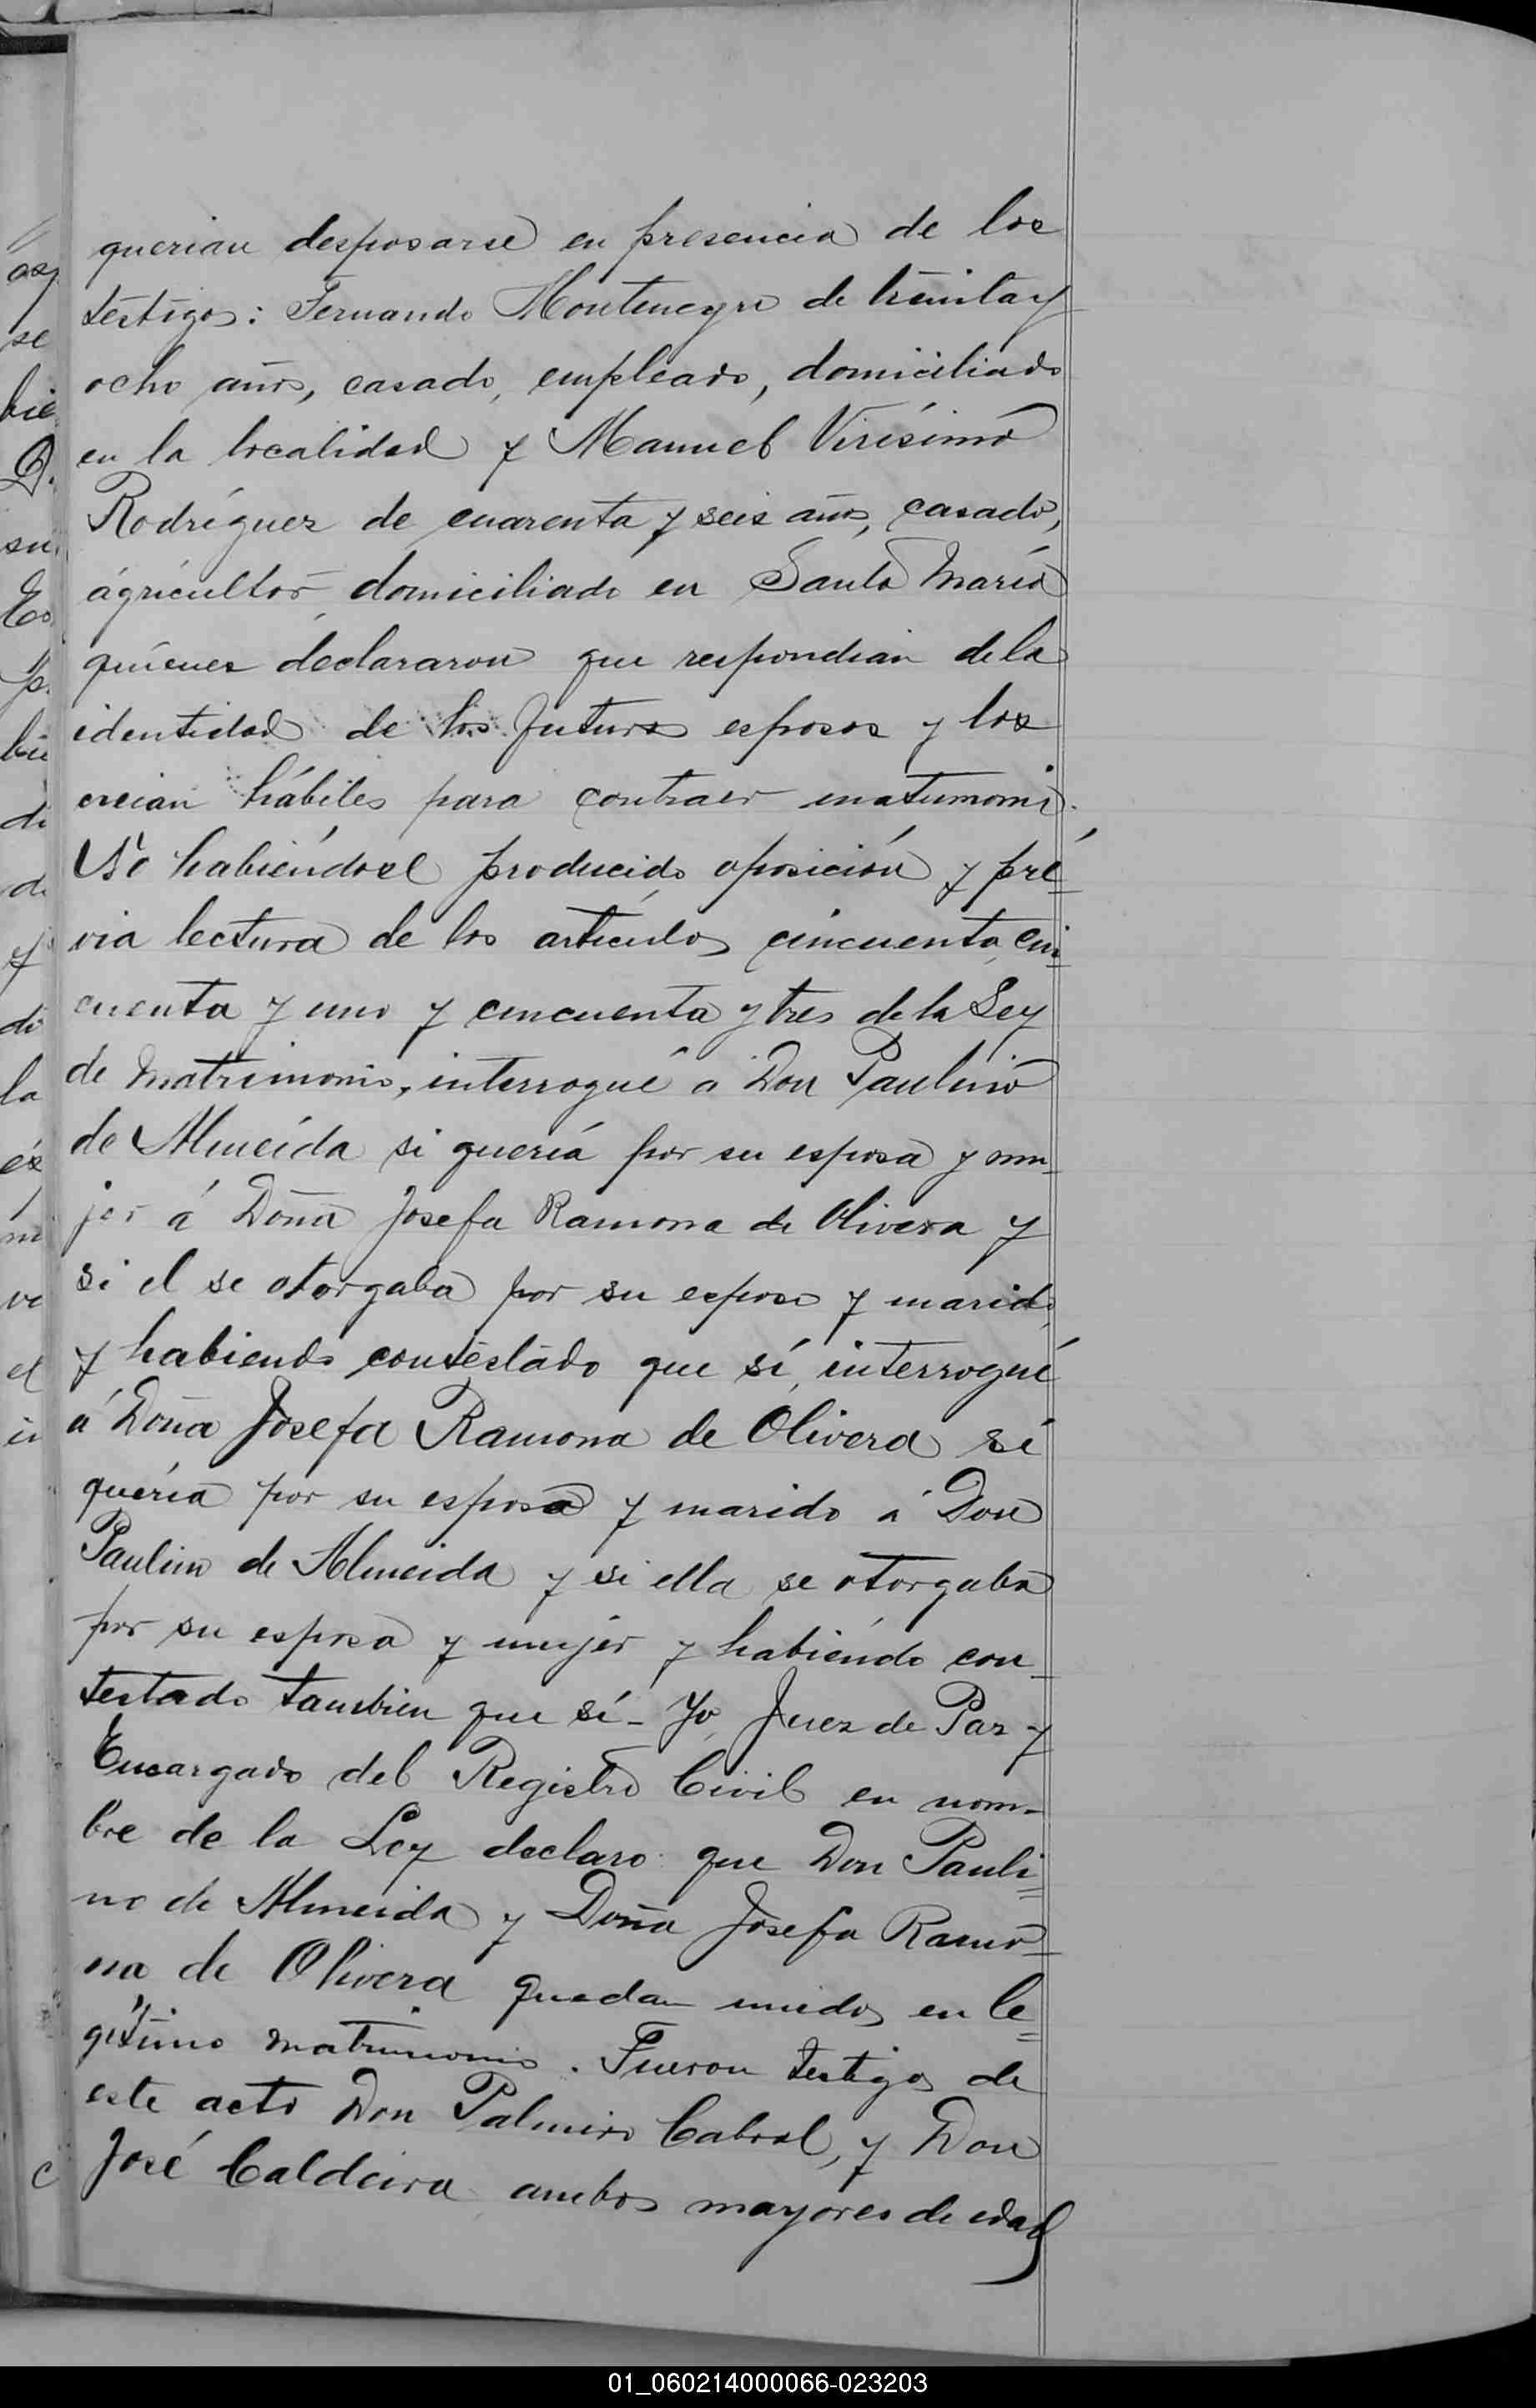 querian desposarse en presencia de los
testigos: Fernando Montenegro de treinta y
ocho años, casado, empleado, domiciliado
en la localidad y Manuel Virísimo
Rodríguez de cuarenta y seis años, casado,
agricultor domiciliado en Santa María
quienes declararon que respondian de la
identidad de los futuros esposos y los
creian hábiles para contraer matrimonio.
No habiéndose producido oposición y pré-
via lectura de los artículos cincuenta, cin-
cuenta y uno y cincuenta y tres de la Ley
de Matrimonio, interrogué a Don Paulino
de Almeida si quería por su esposa y mu-
jer á Doña Josefa Ramona de Olivera y
si el se otorgaba por su esposo y marido,
y habiendo contestado que sí, interrogué
á Doña Josefa Ramona de Olivera si
quería por su esposo y marido á Don
Paulino de Almeida y si ella se otorgaba
por su esposa y mujer y habiendo con-
testado tambien que sí - Yo, Juez de Paz y
Encargado del Registro Civil en nom-
bre de la Ley declaro que Don Pauli=
no de Almeida y Doña Josefa Ramo-
na de Olivera quedan unidos en le=
gítimo matrimonio. Fueron testigos de
este acto Don Palmiro Cabral, y Don
José Caldeira ambos mayores de edad
as
se
bie
D.
su
Eo
p.
bie
di
de
y
di
la
és
ni
ve
el
in
c
01_060214000066-023203